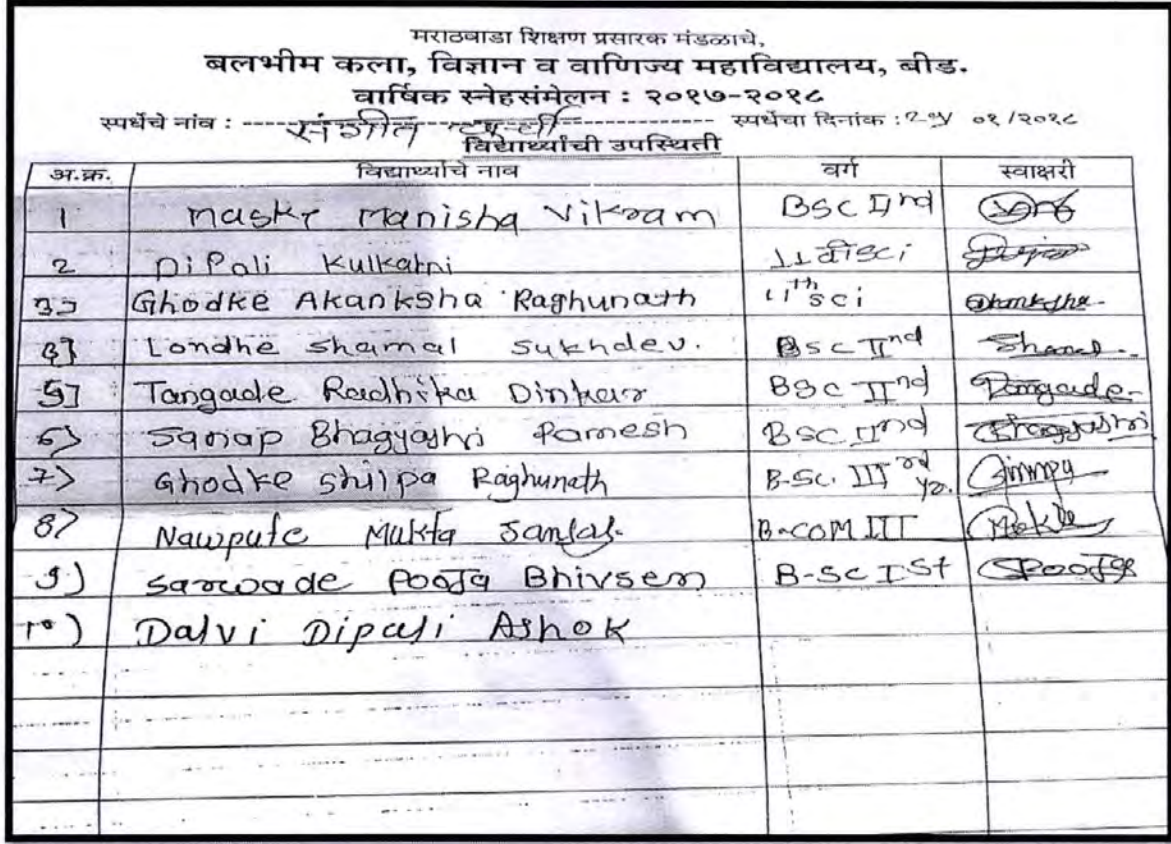 मराठवाडा शिक्षण प्रसारक मंडळाचे,
बलभीम कला, विज्ञान व वाणिज्य महाविद्यालय, बीड.
वार्षिक स्नेहसंमेलन : २०१७-२०१८
स्पर्धेचे नांव : संगीत स्पर्धा स्पर्धेचा दिनांक : ०१/२०१८
विद्यार्थ्यांची उपस्थिती
अ.क्र. विद्यार्थ्याचे नाव वर्ग स्वाक्षरी
1 Maske Manisha Vikram BSC IInd
2 Dipali Kulkarni 11 वी sci
3] Ghodke Akanksha Raghunath 11th sci Akanksha
4] Londhe Shamal Sukhdev. BSC IInd
5] Tangade Radhika Dinkar BSC IInd Tangade
6) Sanap Bhagyashri Ramesh BSC IInd Bhagyashri
7) Ghodke Shilpa Raghunath B.Sc. III rd yr.
8) Nawpute Mukta B.COM III Mukta
9) Sarwade Pooja Bhivsen B-SC Ist Pooja
10) Dalvi Dipali Ashok